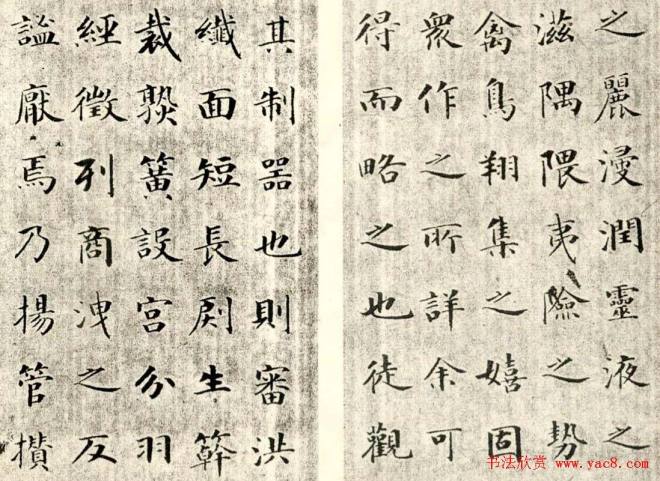 之麗浸潤靈液之
滋隅隈夷險之勢
禽鳥翔集之嬉固
衆作之所詳余可
得而略之也徒觀
其制器也則審洪
纖面短長生簳
裁熟簧設宮分羽
經徵列商洩之反
謐厭焉乃揚管攢
书法欣赏 www.yac8.com